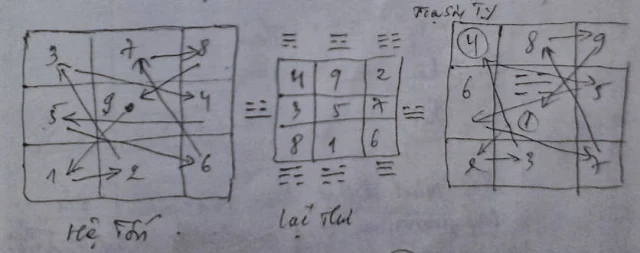 3 7 8
5 9 4
1 2 6
Hệ Tốn
4 9 2
3 5 7
8 1 6
Lạc Thư
4 8 9
6 1 5
2 3 7